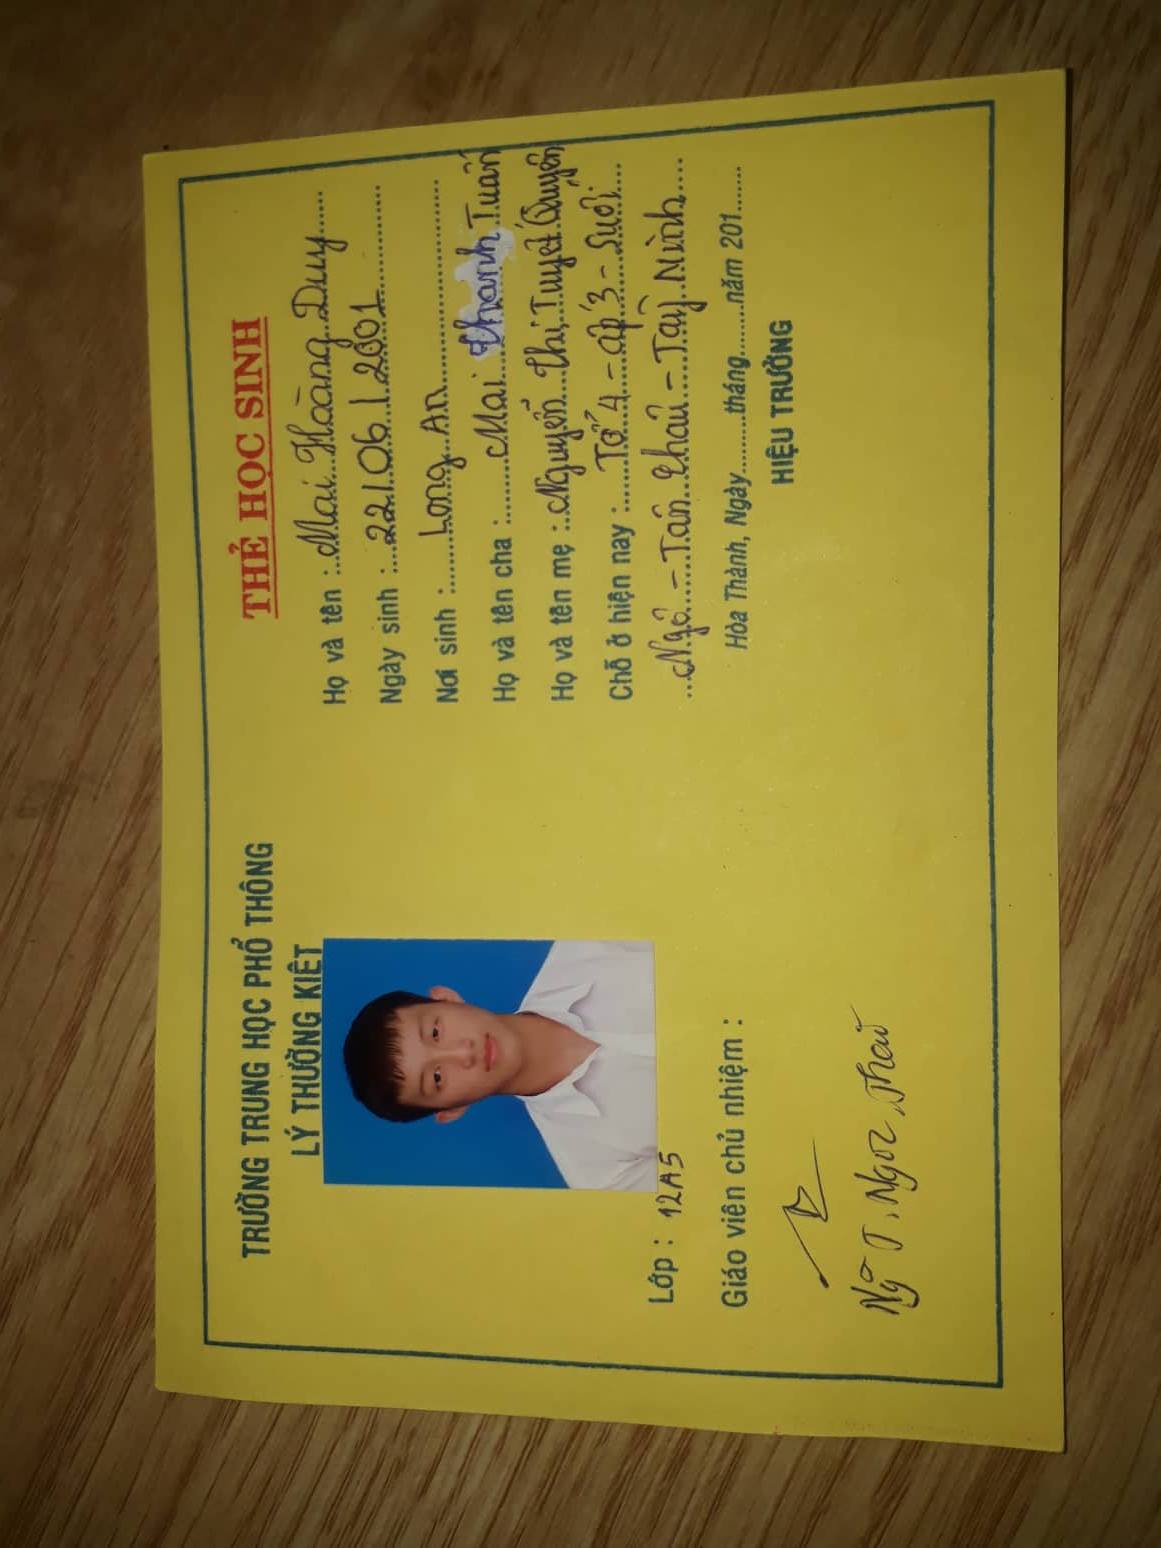 TRƯỜNG TRUNG HỌC PHỔ THÔNG
LÝ THƯỜNG KIỆT
Lớp : 12A5
Giáo viên chủ nhiệm :
Ngô T. Ngọc
THẺ HỌC SINH
Họ và tên : Mai Hoàng Duy
Ngày sinh : 22/06/2001
Nơi sinh : Long An
Họ và tên cha : Mai Thanh Tuấn
Họ và tên mẹ : Nguyễn Thị Tuyết Quyên
Chỗ ở hiện nay : Tổ 4 - ấp 3 - Suối
Ngô - Tân Châu - Tây Ninh
Hòa Thành, Ngày.........tháng.........năm 201......
HIỆU TRƯỞNG